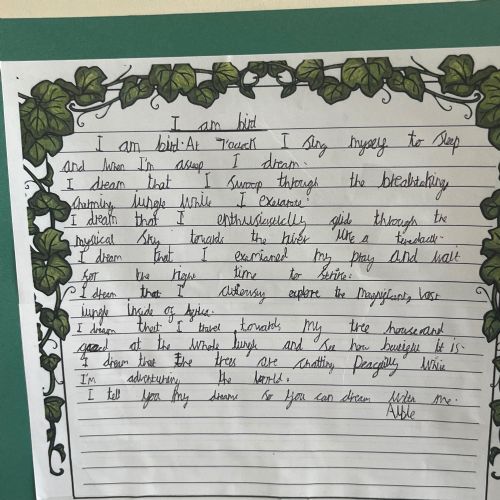 I am bird
I am bird. At 7 o'clock I sing myself to sleep
and when I'm asleep I dream.
I dream that I swoop through the breahtaking,
charming jungle while I
I dream that I enthusiasticlly glide through the
mystical sky towards the river like a
I dream that I examianed my pray and wait
for the right time to strike.
I dream that I explore the magnificant, vast
jungle inside of
I dream that I travel towards my tree house and
at the whole jungle and see how it is.
I dream that the trees are chatting while
I'm adventuring the world.
I tell you my dreams so you can dream like me.